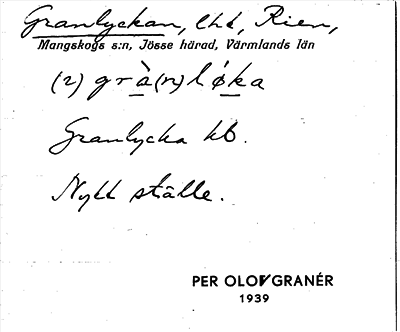 Granlyckan, lht, Rien,
Mangskogs s:n, Jösse härad, Värmlands län
(2) grà(n)lø̀ka
Granlycka kb.
Nytt ställe.
PER OLOV GRANÉR
1939